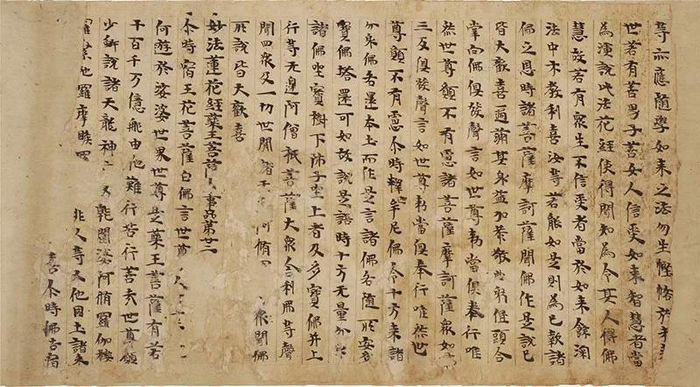 等亦應隨學如來之法勿生慳悋於未
世若有善男子善女人信受如來智慧者當
為演說此法花經使得聞知為令其人得佛
慧故若有衆生不信受者當於如來餘深
法中示教利喜汝等若能如是則為已報諸
佛之恩時諸菩薩摩訶薩聞佛作是說已
皆大歡喜遍滿其身益加恭敬曲躬低頭合
掌向佛俱發聲言如世尊勅當俱奉行唯
然世尊願不有慮諸菩薩摩訶薩衆如
三反俱發聲言如世尊勅當俱奉行唯然世
尊願不有慮尒時釋牟尼佛令十方來諸
分身佛各還本土而作是言諸佛各隨所安多
寶佛塔還可如故說是語時十方无量分
諸佛坐寶樹下師子坐上者及多寶佛并上
行等无邊阿僧祇菩薩大衆舍利弗等聲
聞四衆及一切世間諸天 阿脩 衆聞佛
所說皆大歡喜
妙法蓮花經藥王菩薩 事品第廿二
尒時宿王花菩薩白佛言世尊
何遊於娑婆世界世尊是藥王菩薩有若
干百千万億那由他難行苦行善哉世尊願
少解說諸天龍神 叉乾闥婆阿脩羅伽樓
羅緊 羅摩睺羅 非人等又他國土諸來
喜尒時佛告宿